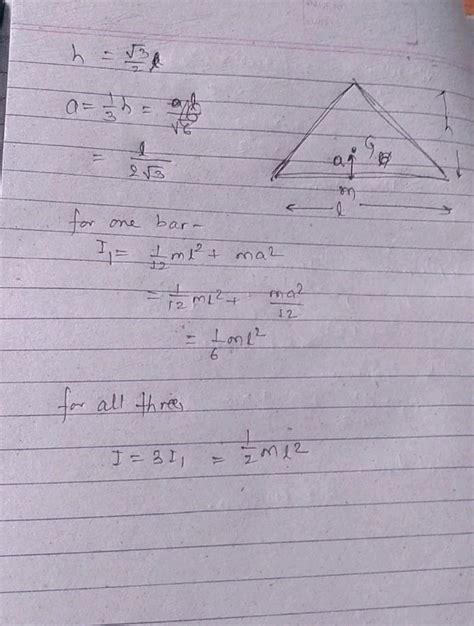 h = √3/2 l
a = 1/3 h =
= l/2√3
G
a
h
m
l
for one bar-
I₁ = 1/12 ml² + ma²
= 1/12 ml² + ma²/12
= 1/6 ml²
for all three,
I = 3I₁ = 1/2 ml²